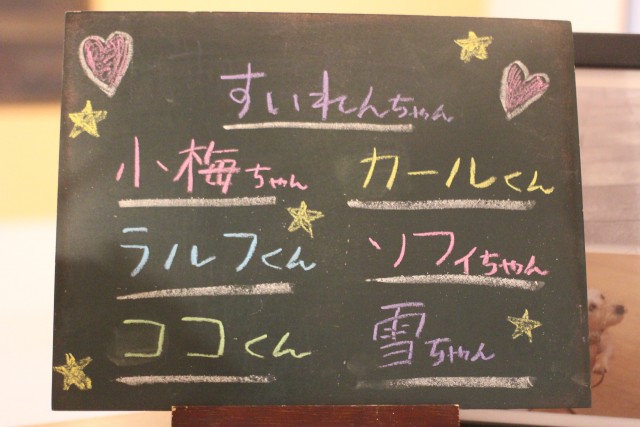 すいれんちゃん
小梅ちゃん カールくん
ラルフくん ソフィちゃん
ココくん 雪ちゃん